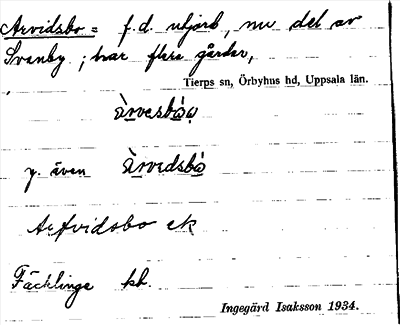 Arvidsbo = f.d. utjord, nu del av
Svanby; har flera gårdar,
Tierps sn, Örbyhus hd, Uppsala län.
Àrvesbó̀a
y. även Àrvidsbò
Arfvidsbo ek
Fäcklinge kb.
Ingegärd Isaksson 1934.